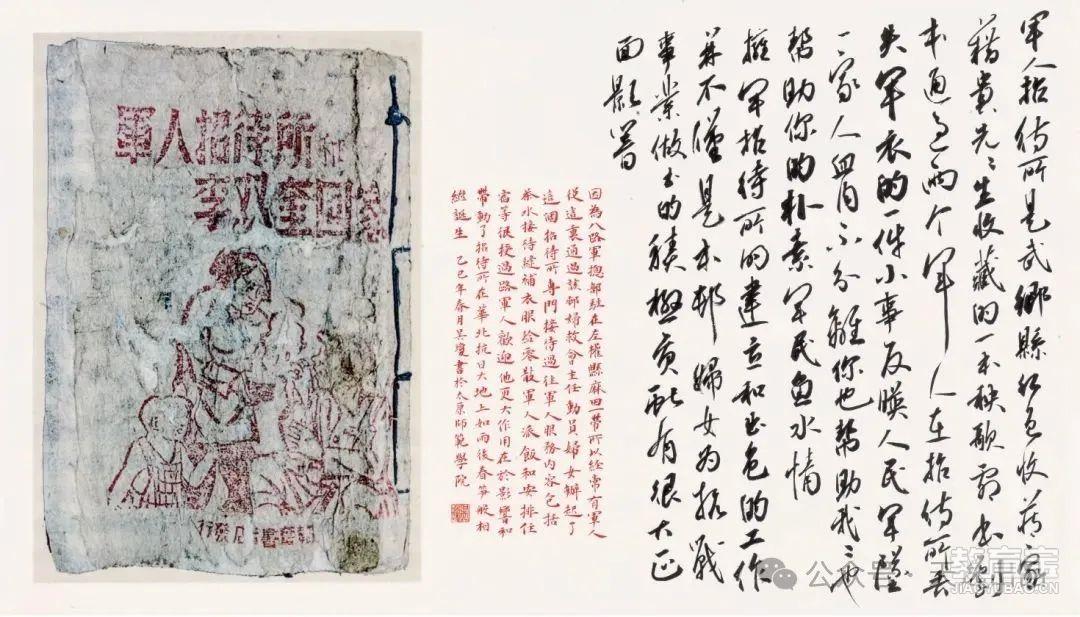 軍人招待所和
李
回
韜奮書店發行
軍人招待所是武鄉縣紅色收藏家
貴先生收藏的一本秧歌
本通過兩个軍人在招待所丟
失軍衣的一件小事反映人民軍隊
一家人血肉不分離你也幫助我我也
幫助你的朴素軍民魚水情
擁軍招待所的建立和出色的工作
並不僅是本邨婦女為抗戰
事業做出的積極貢獻有很大正
面影響
因為八路軍總部駐在左權縣麻田一帶所以經常有軍人
從這裏通過該邨婦救會主任動員婦女辦起了
這個招待所專門接待過往軍人服務內容包括
茶水接待縫補衣服給零散軍人派飯和安排住
宿等很授過路軍人歡迎他更大作用在於影響和
帶動了招待所在華北抗日大地上如雨後春筍般相
繼誕生 乙巳年春月吳慶書於太原師範學院
公众号
教育宝
JIAOYUBAO.CN